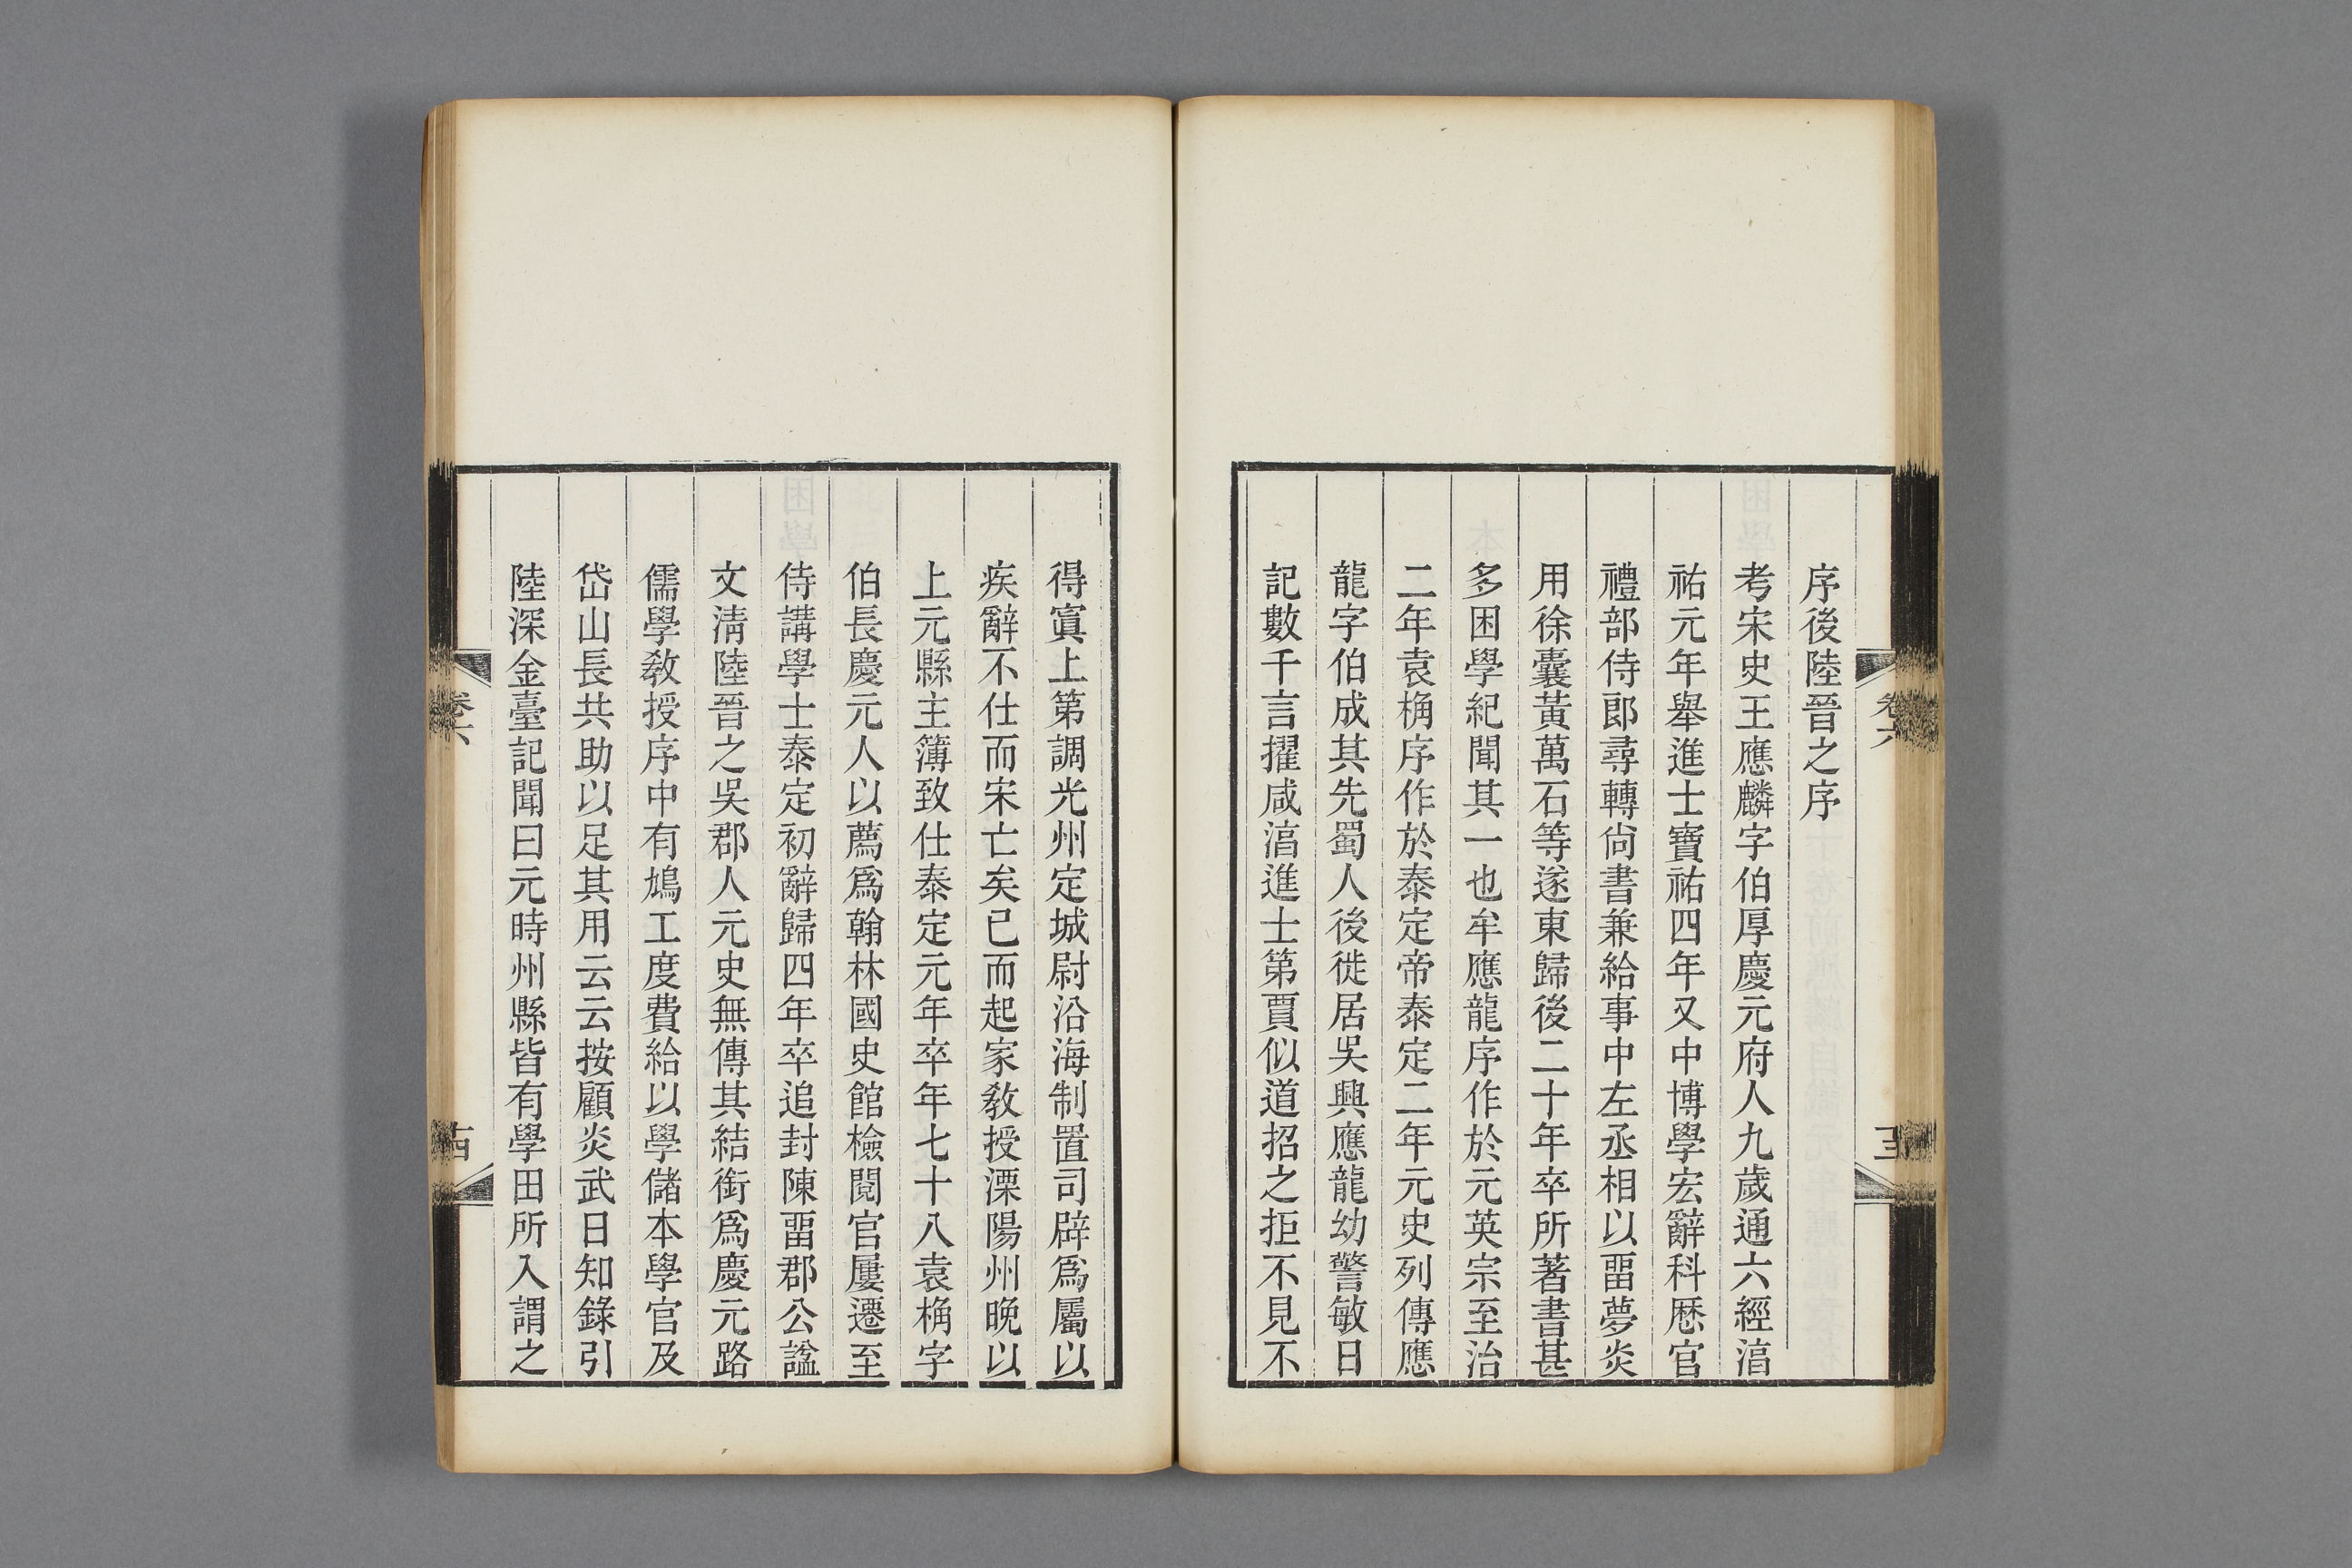 序後陸晉之序
考宋史王應麟字伯厚慶元府人九歲通六經淳
祐元年舉進士寶祐四年又中博學宏辭科歷官
禮部侍郎尋轉尚書兼給事中左丞相以畱夢炎
用徐囊黃萬石等遂東歸後二十年卒所著書甚
多困學紀聞其一也牟應龍序作於元英宗至治
二年袁桷序作於泰定帝泰定二年元史列傳應
龍字伯成其先蜀人後徙居吳興應龍幼警敏日
記數千言擢咸淳進士第賈似道招之拒不見不
得寘上第調光州定城尉沿海制置司辟爲屬以
疾辭不仕而宋亡矣已而起家敎授溧陽州晚以
上元縣主簿致仕泰定元年卒年七十八袁桷字
伯長慶元人以薦爲翰林國史館檢閱官屢遷至
侍講學士泰定初辭歸四年卒追封陳畱郡公諡
文淸陸晉之吳郡人元史無傳其結銜爲慶元路
儒學敎授序中有鳩工度費給以學儲本學官及
岱山長共助以足其用云云按顧炎武日知錄引
陸深金臺記聞曰元時州縣皆有學田所入謂之
卷六